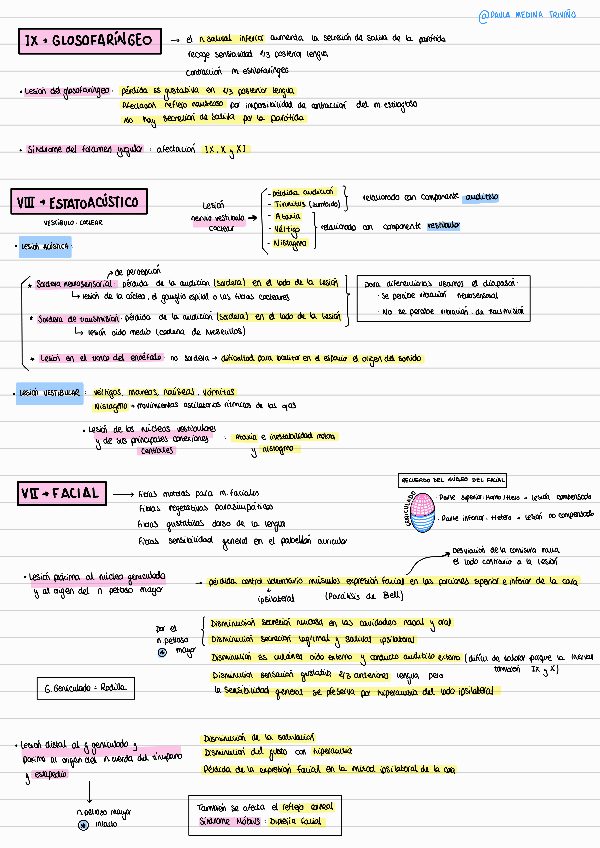 @PAULA MEDINA TRIVIÑO
IX → GLOSOFARÍNGEO
→ el n salival inferior aumenta la secreción de saliva de la parótida
recoge sensibilidad 1/3 posterior lengua
contracción m estilofaríngeo
• Lesión del glosofaríngeo: pérdida ss gustativa en 1/3 posterior lengua
Afectación reflejo nauseoso por imposibilidad de contracción del m estilogloso
No hay secreción de saliva por la parótida
• Síndrome del foramen yugular: afectación IX, X y XI
VIII → ESTATOACÚSTICO
VESTÍBULO-COCLEAR
Lesión
nervio vestíbulo
coclear
- pérdida audición
- Tinnitus (zumbido)
- Ataxia
- Vértigo
- Nistagmo
relacionado con componente auditivo
relacionado con componente vestíbulo
• LESIÓN ACÚSTICA:
→ de percepción
* Sordera neurosensorial: pérdida de la audición (sordera) en el lado de la lesión
↳ lesión de la cóclea, el ganglio espiral o las fibras cocleares
* Sordera de transmisión: pérdida de la audición (sordera) en el lado de la lesión
↳ lesión oído medio (cadena de huesecillos)
para diferenciarlas usamos el diapasón:
· Se percibe vibración: neurosensorial
· No se percibe vibración: de transmisión
* Lesión en el tronco del encéfalo: no sordera → dificultad para localizar en el espacio el origen del sonido
• LESIÓN VESTIBULAR: vértigos, mareos, náuseas, vómitos
Nistagmo → movimientos oscilatorios rítmicos de los ojos
• Lesión de los núcleos vestibulares
y de sus principales conexiones
centrales
: Ataxia e inestabilidad motora
y nistagmo
VII → FACIAL
→ Fibras motoras para m. faciales
Fibras vegetativas parasimpáticas
Fibras gustativas dorso de la lengua
Fibras sensibilidad general en el pabellón auricular
RECUERDO DEL NÚCLEO DEL FACIAL
· Parte superior: Homo/Hetero → lesión compensada
· Parte inferior: Hetero → lesión no compensada
Desviación de la comisura hacia
el lado contrario a la lesión
• Lesión próxima al núcleo geniculado
y al origen del n petroso mayor
→ pérdida control voluntario músculos expresión facial en las porciones superior e inferior de la cara
ipsilateral
(Parálisis de Bell)
por el
n. petroso
mayor
Disminución secreción mucosa en las cavidades nasal y oral
Disminución secreción lagrimal y salival ipsilateral
Disminución ss cutánea oído externo y conducto auditivo externo (difícil de valorar porque la inervan
también IX y X)
Disminución sensación gustativa 2/3 anteriores lengua, pero
la sensibilidad general se preserva por hiperacusia del lado ipsilateral
G. Geniculado = Rodilla
• Lesión distal al g geniculado y
próxima al origen del n cuerda del tímpano
y estapedio
Disminución de la salivación
Disminución del gusto con hiperacusia
Pérdida de la expresión facial en la mitad ipsilateral de la cara
n. petroso mayor
intacto
También se afecta el reflejo corneal
Síndrome Möbius: Diplejia facial